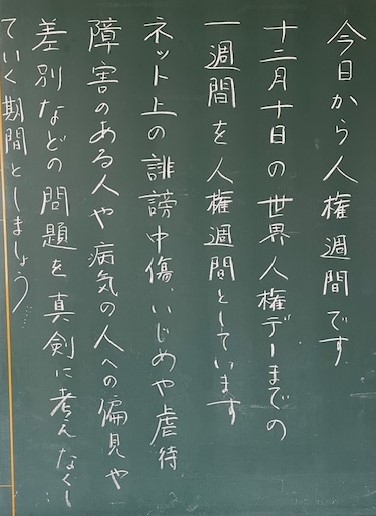 今日から人権週間です
十二月十日の世界人権デーまでの
一週間を人権週間としています
ネット上の誹謗中傷、いじめや虐待
障害のある人や病気の人への偏見や
差別などの問題を真剣に考えなくし
ていく期間としましょう